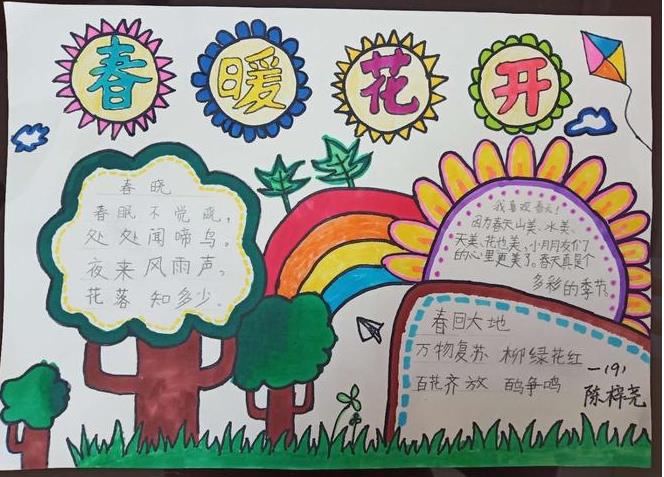 春暖花开
春晓
春眠不觉晓,
处处闻啼鸟。
夜来风雨声,
花落知多少。
我喜欢春天!
因为春天山美、水美、
天美、花也美,小朋友们
的心里更美了。春天真是个
多彩的季节。
春回大地
万物复苏 柳绿花红
百花齐放 百鸟争鸣
一(9)
陈梓尧